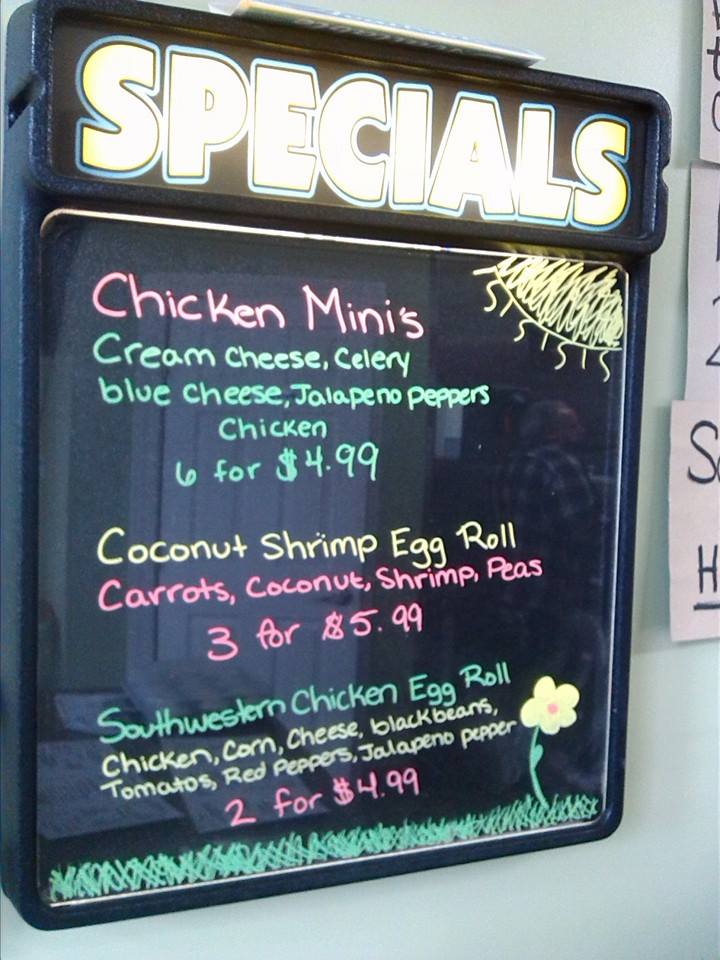 SPECIALS
Chicken Mini's
Cream cheese, celery
blue cheese, Jalapeno peppers
Chicken
6 for $4.99
Coconut Shrimp Egg Roll
Carrots, Coconut, Shrimp, Peas
3 for $5.99
Southwestern Chicken Egg Roll
Chicken, Corn, Cheese, blackbeans,
Tomatos, Red Peppers, Jalapeno pepper
2 for $4.99